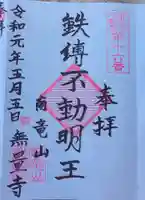 奉拝
鉄縛不動明王
南竜山
無量寺
令和元年五月五日